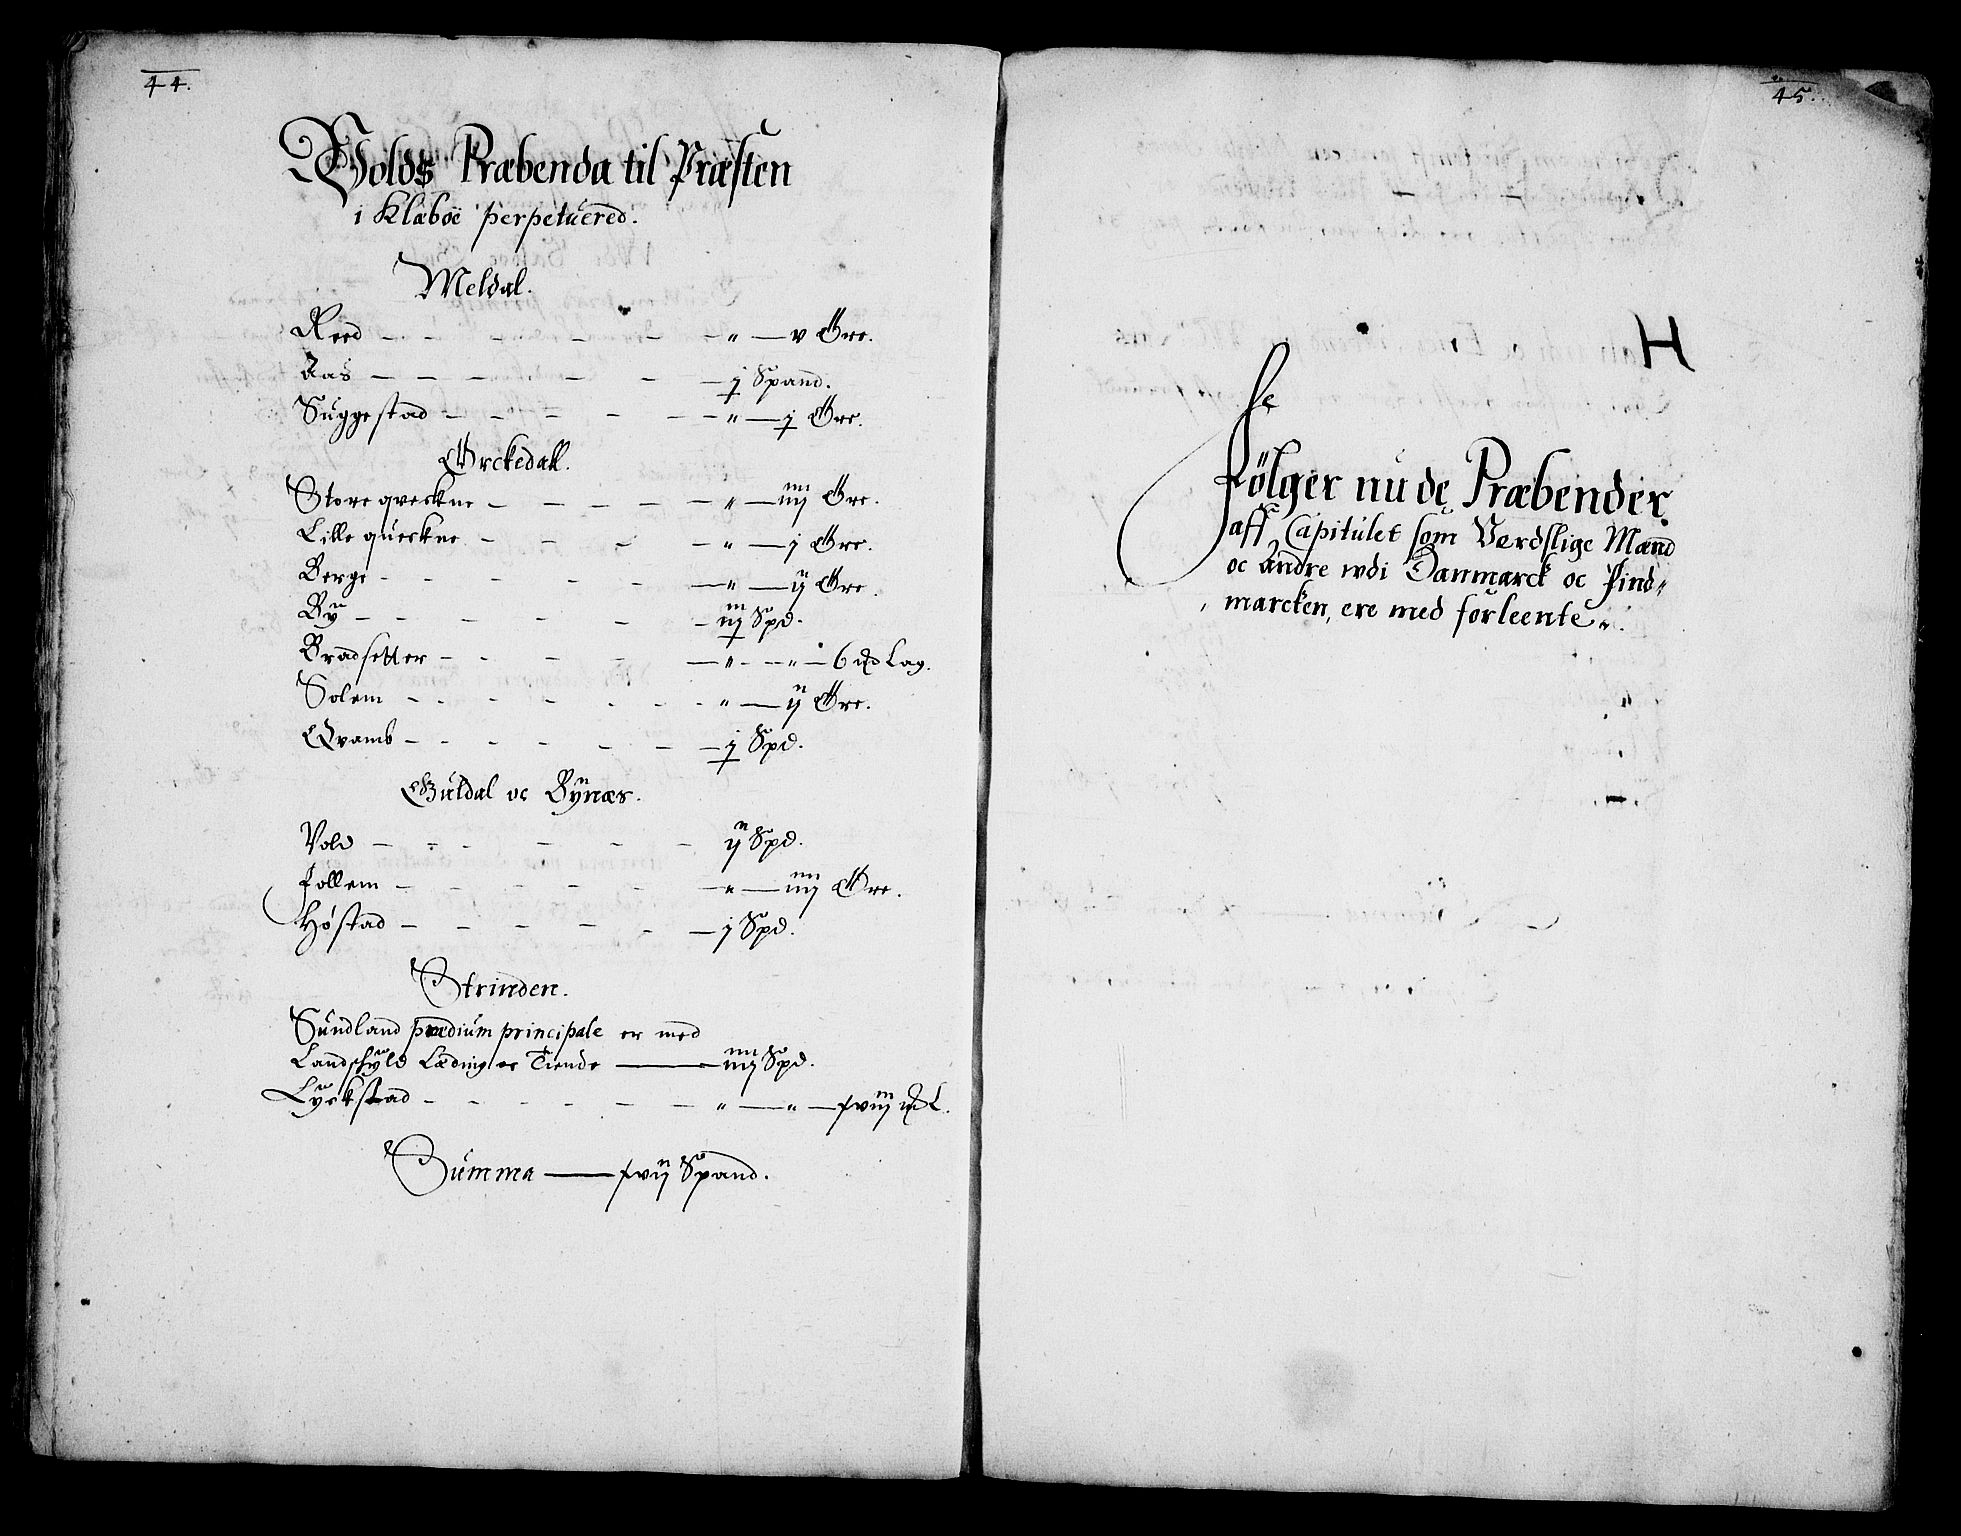 44.
Volds Præbenda til Præsten
i Klæboe perpetuered.
Meldal.
Reed — — — — — — „ — v Öre.
Aas — — — — — — j Spand.
Suggestad — — — — — — „ — j Öre.
Örckedall.
Store qveskne — — — — — „ — iiij Öre.
Lille queskne — — — — „ — j Öre.
Berge — — — — — — „ — ij Öre.
By — — — — — — iij Spd.
Bradsetter — — — — — „ — „ — 6 Lag.
Solem — — — — — — „ — ij Öre.
Qvamb — — — — — — j Spd.
Guldal oc Bynæs.
Vold — — — — — — ij Spd.
Follem — — — — — — „ — iiij Öre.
Høstad — — — — — — j Spd.
Strinden.
Sundland prædium principale er med
Landskyld Læding oc Tiende — iiij Spd.
Lyckstad — — — — — — „ — „ — xviij L.
Summa — xvij Spand.
45.
H
Følger nu de Præbender
aff Capitulet som Verdslige Mænd
oc Andre udi Danmarck oc Find„
marcken, ere med forleente„.